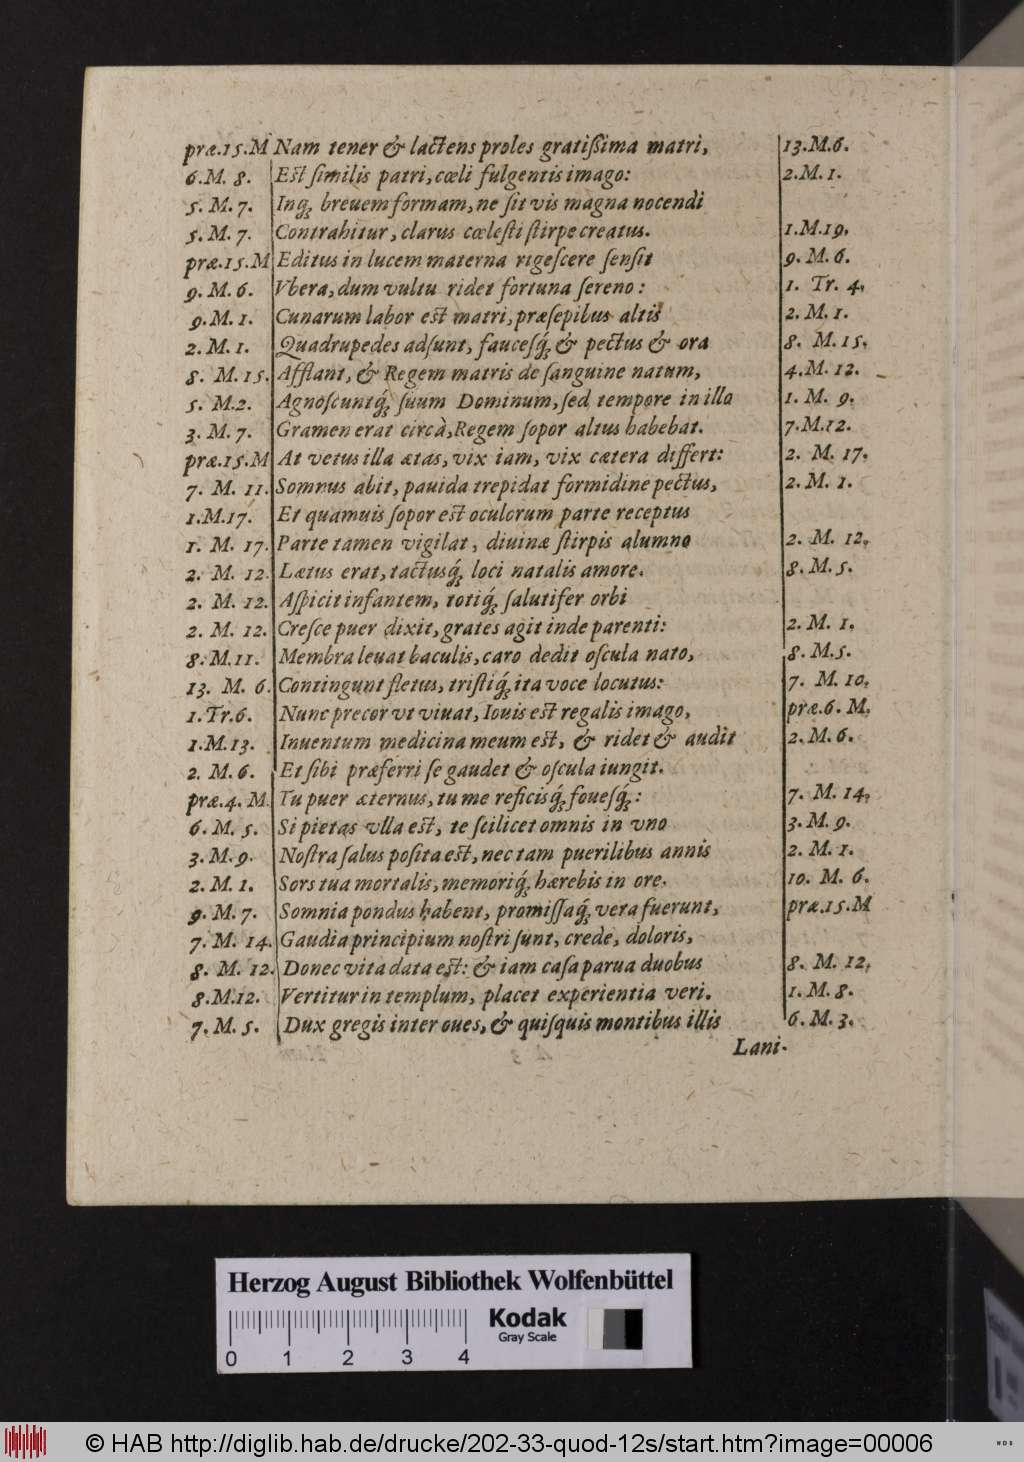 præ.15.M Nam tener & lactens proles gratißima matri, 13.M.6.
6.M. 8. Est ſimilis patri, cœli fulgentis imago: 2.M. 1.
5. M. 7. Inq; breuem formam, ne ſit vis magna nocendi
5. M. 7. Contrahitur, clarus cœleſti ſtirpe creatus. 1.M.19.
præ.15.M Editus in lucem materna rigeſcere ſenſit 9. M. 6.
9. M. 6. Vbera, dum vultu ridet fortuna ſereno: 1. Tr. 4.
9. M. 1. Cunarum labor est matri, præſepibus altis 2. M. 1.
2. M. 1. Quadrupedes adſunt, fauceſq́; & pectus & ora 8. M. 15.
8. M. 15. Afflant, & Regem matris de ſanguine natum, 4.M. 12.
5. M.2. Agnoſcuntq́; ſuum Dominum, ſed tempore in illo 1. M. 9.
3. M. 7. Gramen erat circà, Regem ſopor altus habebat. 7.M.12.
præ.15.M At vetus illa ætas, vix iam, vix cætera differt: 2. M. 17.
7. M. 11. Somnus abit, pauida trepidat formidine pectus, 2. M. 1.
1.M.17. Et quamuis ſopor est oculorum parte receptus
1. M. 17. Parte tamen vigilat, diuinæ ſtirpis alumno 2. M. 12.
2. M. 12. Lætus erat, tactusq́; loci natalis amore. 8. M. 5.
2. M. 12. Aſpicit infantem, totiq́; ſalutifer orbi
2. M. 12. Creſce puer dixit, grates agit inde parenti: 2. M. 1.
8. M.11. Membra leuat baculis, caro dedit oſcula nato, 8. M.5.
13. M. 6. Contingunt fletus, triſtiq́; ita voce locutus: 7. M. 10.
1.Tr.6. Nunc precor vt viuat, Iouis est regalis imago, præ.6. M.
1.M.13. Inuentum medicina meum est, & ridet & audit 2. M. 6.
2. M. 6. Et ſibi præferri ſe gaudet & oſcula iungit.
præ.4. M. Tu puer æternus, tu me reficisq́; foueſq́;: 7. M. 14.
6. M. 5. Si pietas vlla est, te ſcilicet omnis in vno 3. M. 9.
3. M. 9. Noſtra ſalus poſita est, nec tam puerilibus annis 2. M. 1.
2. M. 1. Sors tua mortalis, memoriq́; hærebis in ore. 10. M. 6.
9. M. 7. Somnia pondus habent, promiſſaq́; vera fuerunt, præ.15.M
7. M. 14. Gaudia principium noſtri ſunt, crede, doloris,
8. M. 12. Donec vita data est: & iam caſa parua duobus 8. M. 12.
8.M.12. Vertitur in templum, placet experientia veri. 1. M. 8.
7. M. 5. Dux gregis inter oues, & quiſquis montibus illis 6. M. 3.
Lani-
Herzog August Bibliothek Wolfenbüttel
Kodak
Gray Scale
0 1 2 3 4
© HAB http://diglib.hab.de/drucke/202-33-quod-12s/start.htm?image=00006